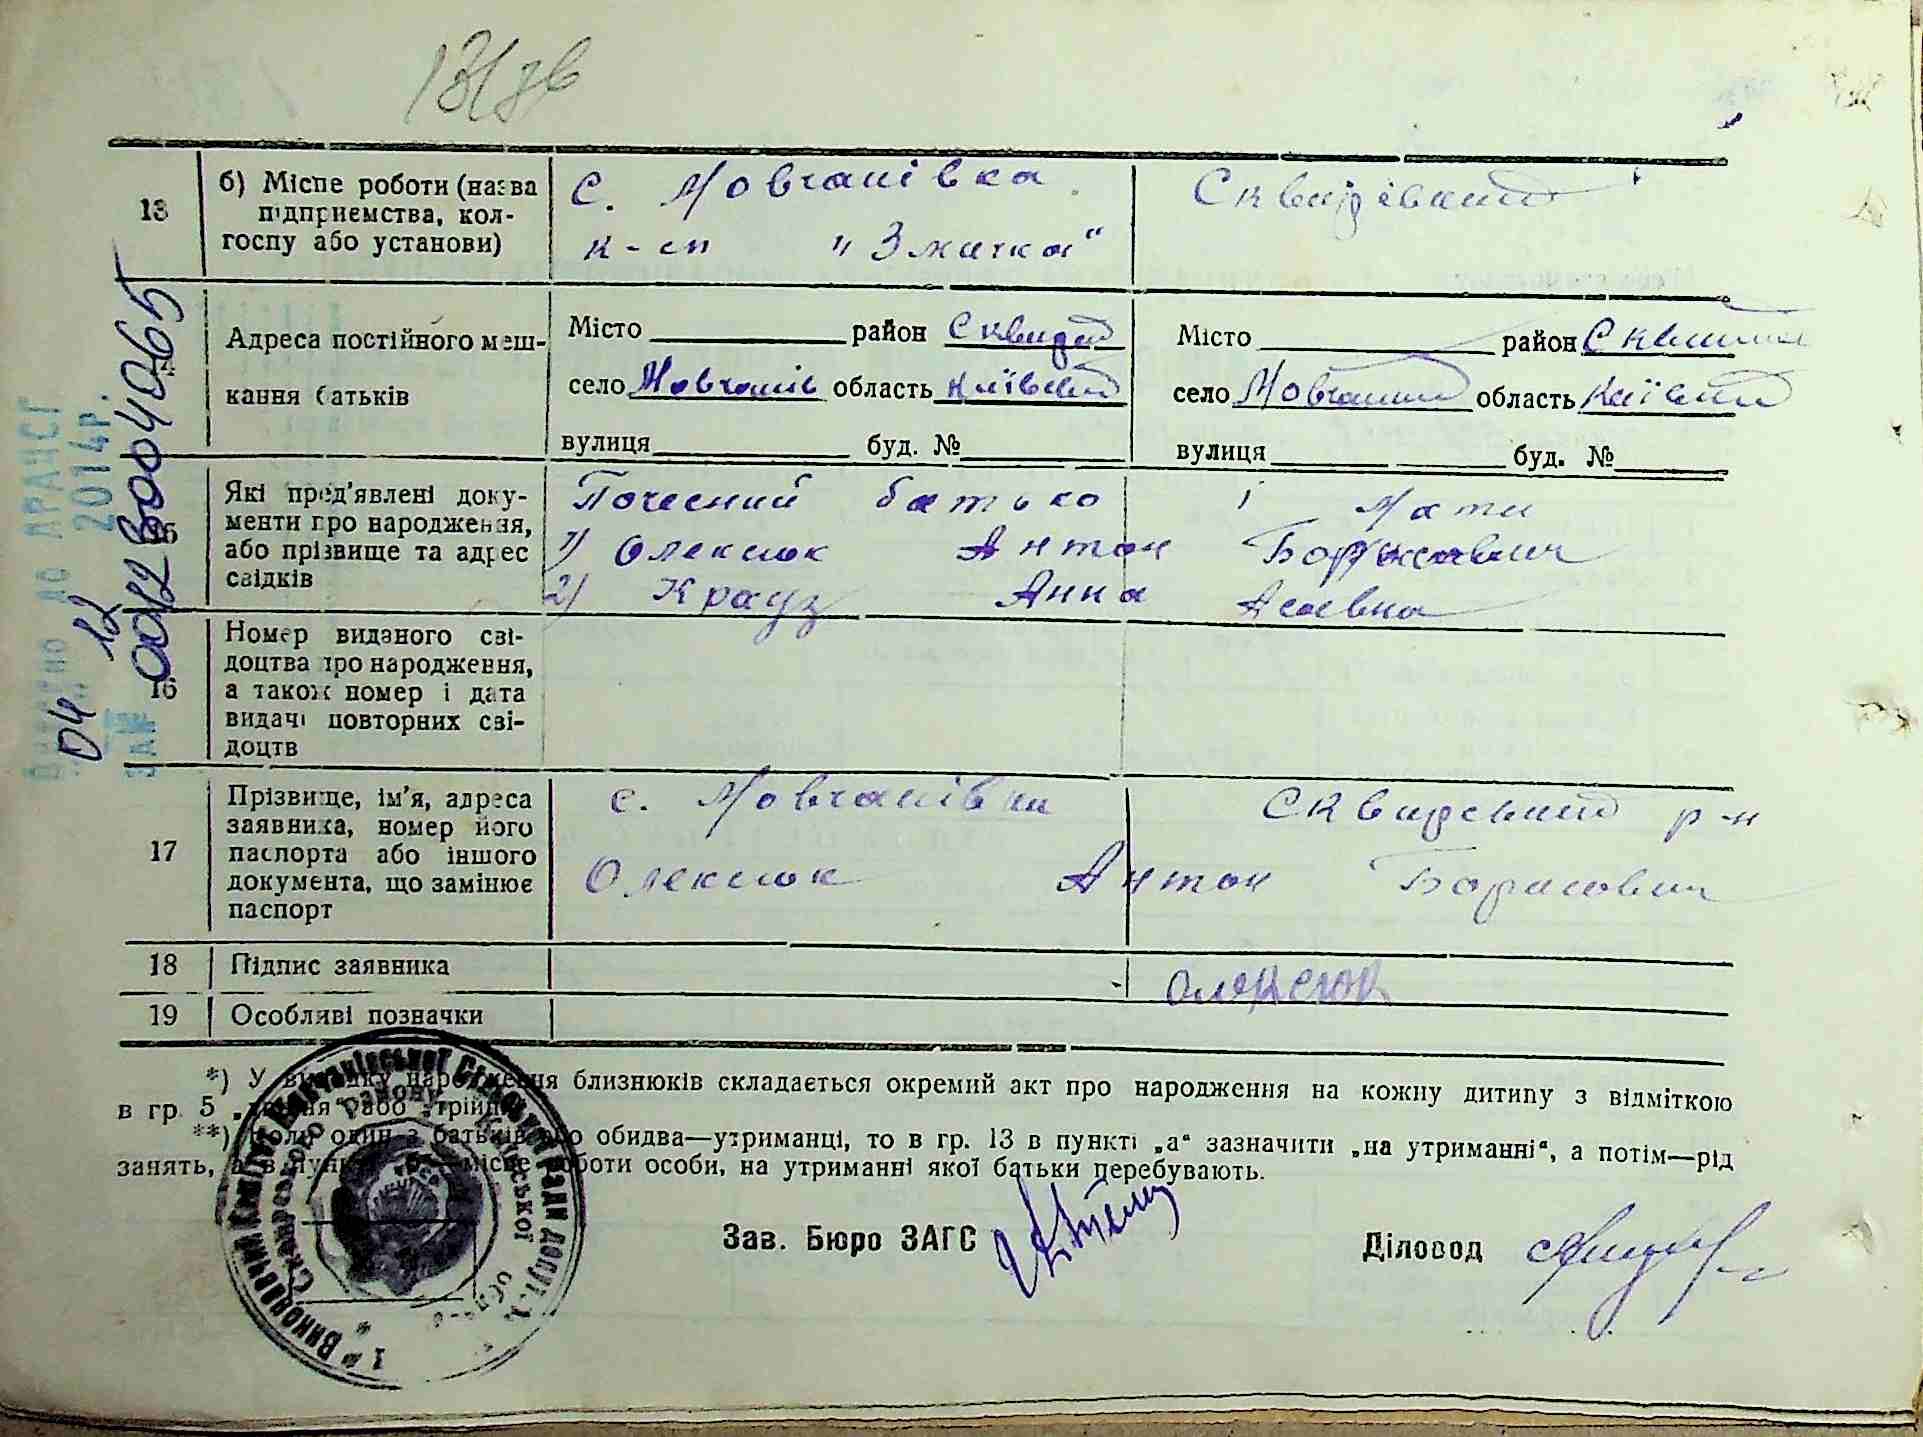 13
б) Місце роботи (назва
підприємства, кол-
госпу або установи)
с. Мовчанівка
к-сп "Змичка"
14
Адреса постійного меш-
кання батьків
Місто район Сквирский
село Мовчанів область Київский
вулиця буд. №
Місто район
село область Київский
вулиця буд. №
15
Які пред'явлені доку-
менти про народження,
або прізвище та адрес
свідків
Почесний батько і Мати
1) Олексюк Антон Борисович
2) Крауз Анна
16
Номер виданого сві-
доцтва про народження,
а також номер і дата
видачі повторних сві-
доцтв
17
Прізвище, ім'я, адреса
заявника, номер його
паспорта або іншого
документа, що замінює
паспорт
с. Мовчанівки Сквирський р-н
Олексюк Антон Борисович
18 Підпис заявника
Олексюк
19 Особливі позначки
*) У випадку народження близнюків складається окремий акт про народження на кожну дитину з відміткою
в гр. 5 „двійня" або „трійня".
**) Коли один з батьків або обидва—утриманці, то в гр. 13 в пункті „а" зазначити „на утриманні", а потім—рід
занять, а в пункті „б"—місце роботи особи, на утриманні якої батьки перебувають.
Зав. Бюро ЗАГС
Діловод
Внесено до ДРАЦСГ
04 12 2014р.
ЗА №
00122004065